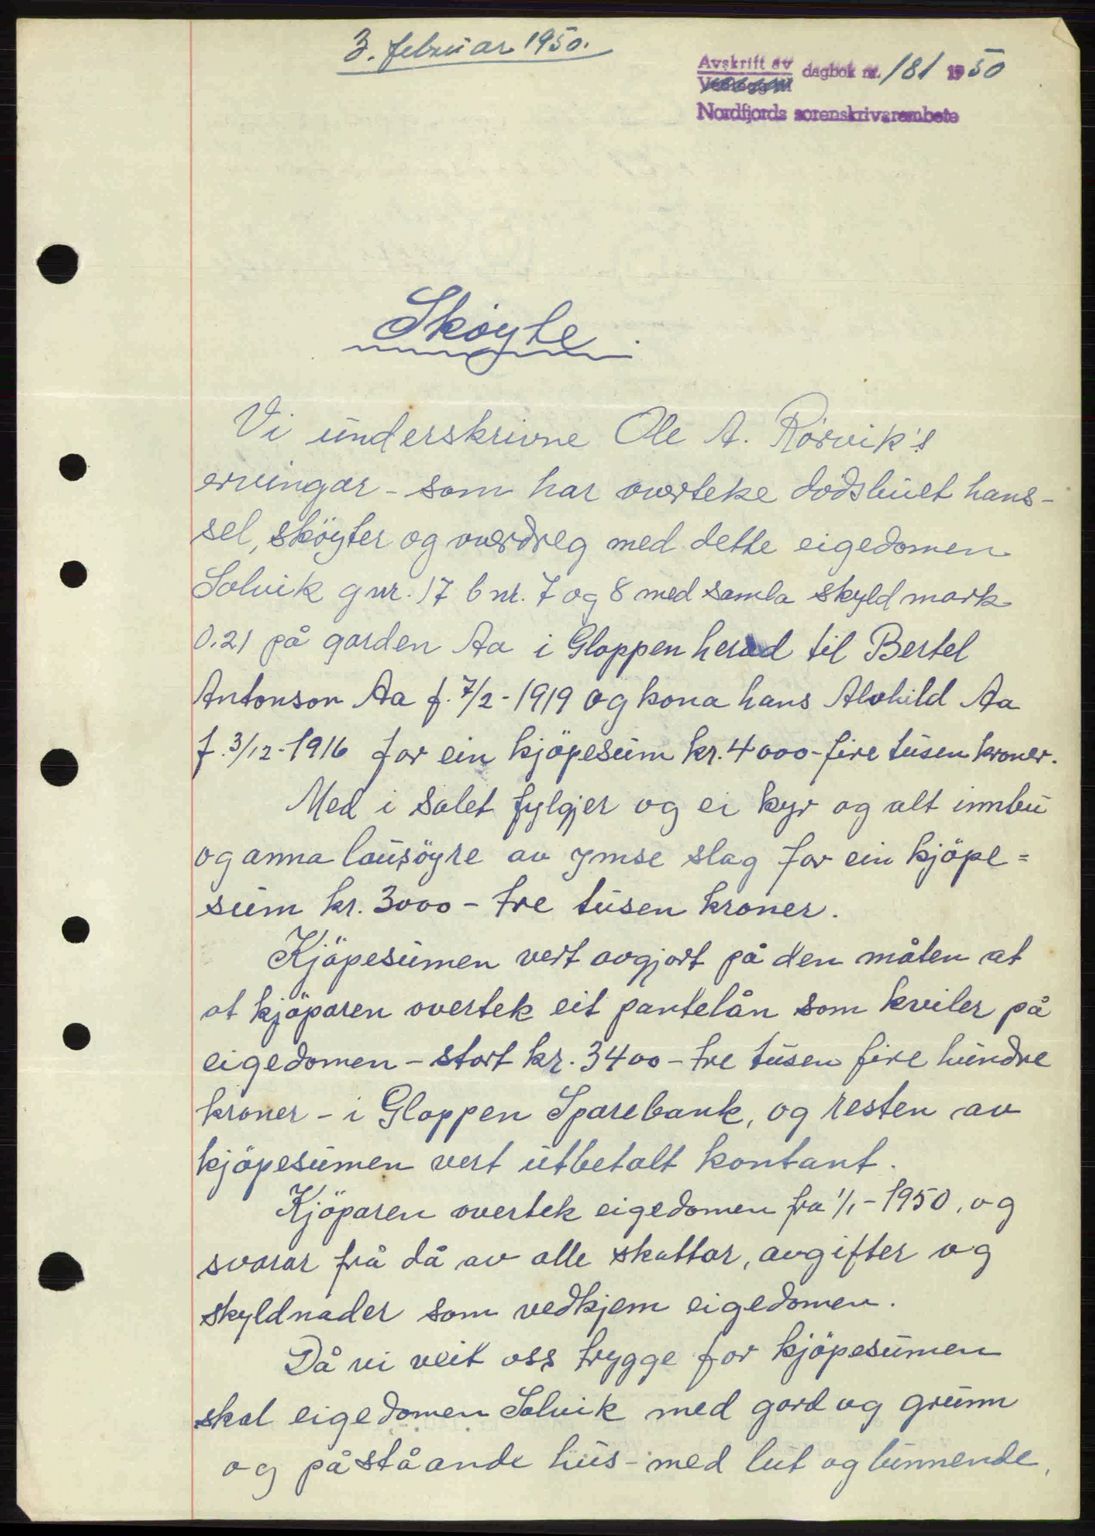 3. februar 1950.
Avskrift av dagbok nr. 181 1950
Nordfjords sorenskrivarembete
Skøyte.
Vi underskrivne Ole A. Rørvik's
ervingar - som har overteke dödsbuet hans -
sel, sköyter og overdreg med dette eigedomen
Solvik gnr. 17 bnr. 7 og 8 med samla skyld mark
0.21 på garden Aa i Gloppen herad til Bertel
Antonson Aa f. 7/2 - 1919 og kona hans Alvhild Aa
f. 3/12 - 1916 for ein kjöpesum kr. 4000 - fire tusen kroner.
Med i salet fylgjer og ei kyr og alt innbu
og anna lausöyre av ymse slag for ein kjöpe=
sum kr. 3000 - tre tusen kroner.
Kjöpesumen vert avgjort på den måten at
at kjöparen overtek eit pantelån som kviler på
eigedomen - stort kr. 3400 - tre tusen fire hundre
kroner - i Gloppen Sparebank, og resten av
kjöpesumen vert utbetalt kontant.
Kjöparen overtek eigedomen fra 1/1 - 1950, og
svarar frå då av alle skattar, avgifter og
skyldnader som vedkjem eigedomen.
Då vi veit oss trygge for kjöpesumen
skal eigedomen Solvik med gard og grunn
og påståande hus - med lut og lunnende,